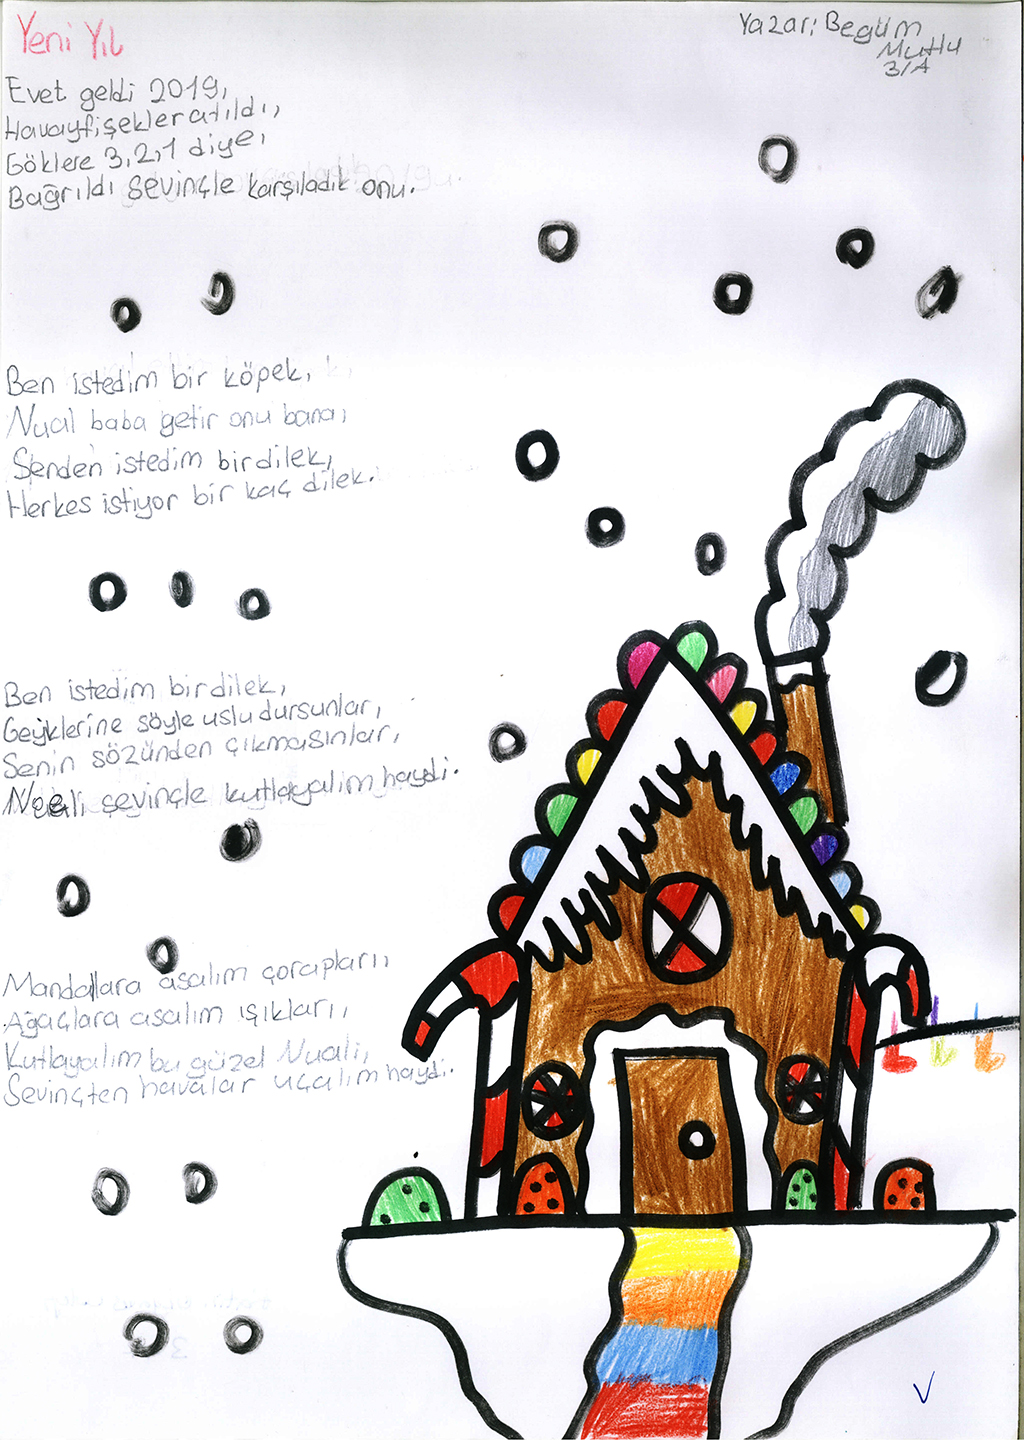 Yeni Yıl
Yazar: Begüm
Mutlu
3/A
Evet geldi 2019,
Havayfişekler atıldı,
Göklere 3,2,1 diye,
Bağrıldı sevinçle karşıladık onu.
Ben istedim bir köpek,
Nual baba getir onu bana,
Senden istedim bir dilek,
Herkes istiyor bir kaç dilek.
Ben istedim bir dilek,
Geyiklerine söyle uslu dursunlar,
Senin sözünden çıkmasınlar,
Noeli sevinçle kutlayalım haydi.
Mandallara asalım çorapları,
Ağaçlara asalım ışıkları,
Kutlayalım bu güzel Nuali,
Sevinçten havalar uçalım haydi.